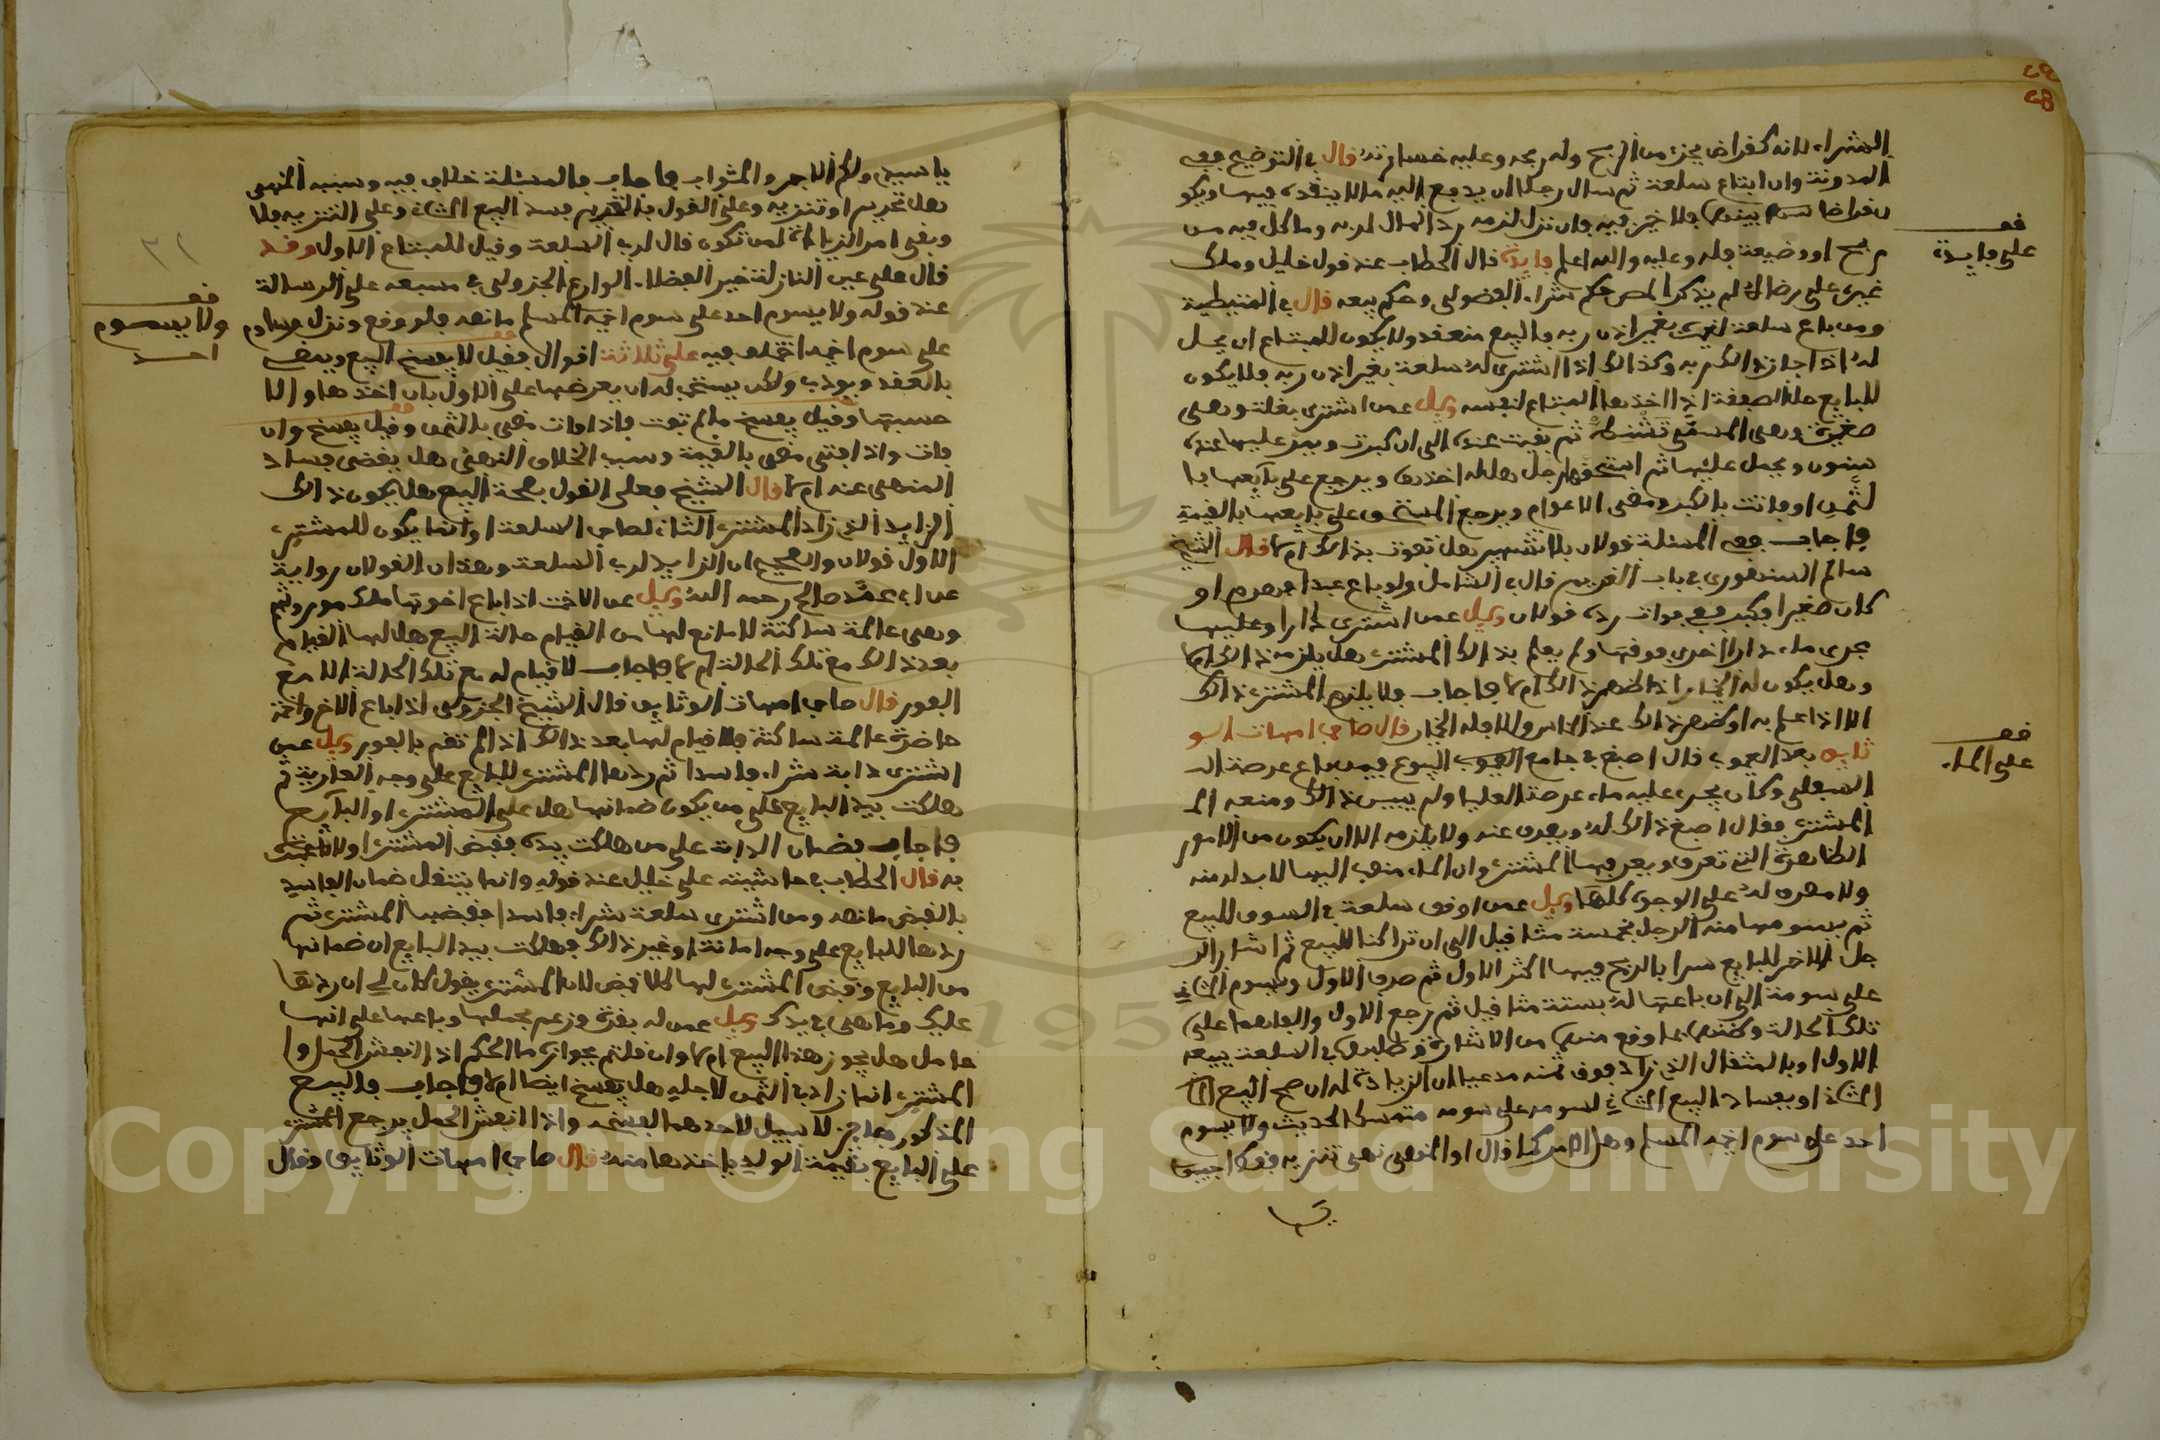 المشراء لانه كفراض بجزء من الربح وله ربحه وعليه خسارته قال في التوضيح ففي
المدونة وان ابتاع سلعة ثم سال رجلا ان يدفع اليه مالا ينقده فيها ويكو
ن قراضا بينهما فلا خير فيه فان نزل لزمه رد المال لربه وما كان فيه من
ربح او وضيعة فله وعليه والله اعلم فايدة قال الحطاب عند قول خليل وملك
غيره على رضاه لم يذكر المص حكم شراء الفضولي وحكم بيعه قال في المتيطية
ومن باع سلعة لغيره بغير اذن ربه فالبيع منعقد ولا يكون للمبتاع ان يحل
له اذا اجازه ربه وكذالك اذا اشترى له سلعة بغير اذن ربه فلا يكون
للبايع حل الصفقة اذا اخذها المبتاع لنفسه وسيل عمن اشترى بغلة وهي
صغيرة وهي المسمى ثم بقيت عنده الى ان كبرت ويمر عليها عنده
سنون ويحمل عليها ثم استحقها رجل هل له اخذها ويرجع على بايعها با
لثمن او فاتت بالكبر ومضي الاعوام ويرجع المستحق على بايعها بالقيمة
فاجاب ففي المسئلة قولان بلا تشهير هل تفوت بذالك ام لا قال الشيخ
سالم السنهوري في باب الفريم قال في الشامل ولو باع عبدا فهرم او
كان صغيرا فكبر ففي فوات رده قولان وسيل عمن اشترى دارا وعليها
مجرى ماء دار اخرى فوقها ولم يعلم بذالك المشتري هل يلزمه ذالك ام لا
وهل يكون له الخيار اذا ظهر ذالك ام لا فاجاب ولا يلزم المشتري ذالك
الا اذا علم به او ظهر ذالك عند الناس والا فله الخيار قال صاحب امهات الو
ثايق بعد العيوب قال اصبغ في جامع العيوب البيوع فيمن باع عرصة له
السفلي وكان يجري عليه ماء عرصة العليا ولم يبين ذالك ومنعه ا
المشتري فقال اصبغ ذالك له ويصرف عنه ولا يلزمه الا ان يكون من الامور
الظاهرة التي تعرف ويعرفها المشتري وان الماء منصب اليها لابد له منه
ولا مصرف له على الوجوه كلها وسيل عمن اوقف سلعة في السوق للبيع
ثم يسومها منه الرجل بخمسة مثاقيل الى ان تراكنا للبيع ثم اشار الر
جل الاخر للبايع سرا بالربح فيها اكثر الاول ثم صرف الاول وبسوم الثاني
على سومة الى ان باعها له بستة مثاقيل ثم رجع الاول والفاهما على
تلك الحالة وفهم ما وقع منهما من الاشارة وطلبه في السلعة ببيعه
الاول او بالمثقال الذي زاد فوق ثمنه مدعيا ان الزيادة له ان صح البيع
الثاني او بفساد البيع الثاني لسومه على سومه متمسكا الحديث ولا يسوم
احد على سوم اخيه المسلم وهل الامر كما قال او النهي نهي تنزيه فقط اجيبوا
يا سيدي ولكم الاجر والثواب فاجاب فالمسئلة خلاف فيه وسببه النهي
هل تحريم او تنزيه وعلى القول بالتحريم يفسد البيع الثاني وعلى التنزيه فلا
وبقي امر الزيادة لمن تكون قال لرب السلعة وقيل للمبتاع الاول وقد
قال على عين النازلة خير الفضلاء الوارع الجزولي في مسبعه على الرسالة
عند قوله ولا يسوم احد على سوم اخيه المسلم ما نصه فلو وقع ونزل وساوم
على سوم اخيه اختلف فيه على ثلاثة اقوال فقيل لا يفسخ البيع ويمضي
بالعقد ويودب ولاكن يستحب له ان يعرضها على الاول بان اخذها والا
حسبها وقيل يفسخ ما لم تفت فاذا فات مضى بالثمن وقيل يفسخ وان
فات واذا فتنى مضى بالقيمة وسبب الخلاف النهي هل يقضي بفساد
المنهي عنه ام لا قال الشيخ وعلى القول بصحة البيع هل يكون ذالك
الزايد الذي زاد المشتري الثاني لصاحب السلعة او انما يكون للمشتري
الاول قولان والصحيح ان الزايد لرب السلعة وهذان القولان رواية
عن ابي محمد صالح رحمه الله وسيل عن الاخت اذا باع اخوتها ملك موروثهم
وهي عالمة ساكتة لا مانع لها من القيام حالة البيع هل لها القيام
بعد ذالك مع تلك الحالة ام لا فاجاب لا قيام له مع تلك الحالة الا مع
الفور قال صاحب امهات الوثايق قال الشيخ الجزولي اذا باع الاخ واخته
حاضرة عالمة ساكتة فلا قيام لها بعد ذالك اذا لم تقم بالفور وسيل عمن
اشترى دابة شراء فاسدا ثم ردها المشتري للبايع على وجه العارية ثم
هلكت بيد البايع على من يكون ضمانها هل على المشتري او البايع
فاجاب فضمان الدابة على من هلكت بيده فقبض المشتري اولا لا عبرة
به قال الحطاب في حاشيته على خليل عند قوله وانما ينتقل ضمان الفاسد
بالقبض ما نصه ومن اشترى سلعة شراء فاسدا فقبضها المشتري ثم
ردها للبايع على وجه امانة او غير ذالك فهلكت بيد البايع ان ضمانها
من البايع وقبض المشتري لها كلا قبض لان المشتري يقول كان لي ان ردها
عليك وما هي في يدك وسيل عمن له بقرة وزعم بحملها وباعها على انها
حامل هل يجوز هذا البيع ام لا وان قلتم بجوازه ما الحكم اذا انفش الحمل وا
المشتري انما زاد في الثمن لاجله هل يفسخ ايضا ام لا فاجاب فالبيع
المذكور جايز لا سبيل لاحدهما لفسخه واذا انفش الحمل يرجع المشتر
على البايع بقيمة الولد ياخذها منه قال صاحب امهات الوثايق وقال
قف
على فايدة
قف
على الماء
قف
ولا يسوم
احد
28
28
٣١
يا سيد
Copyright © King Saud University
195